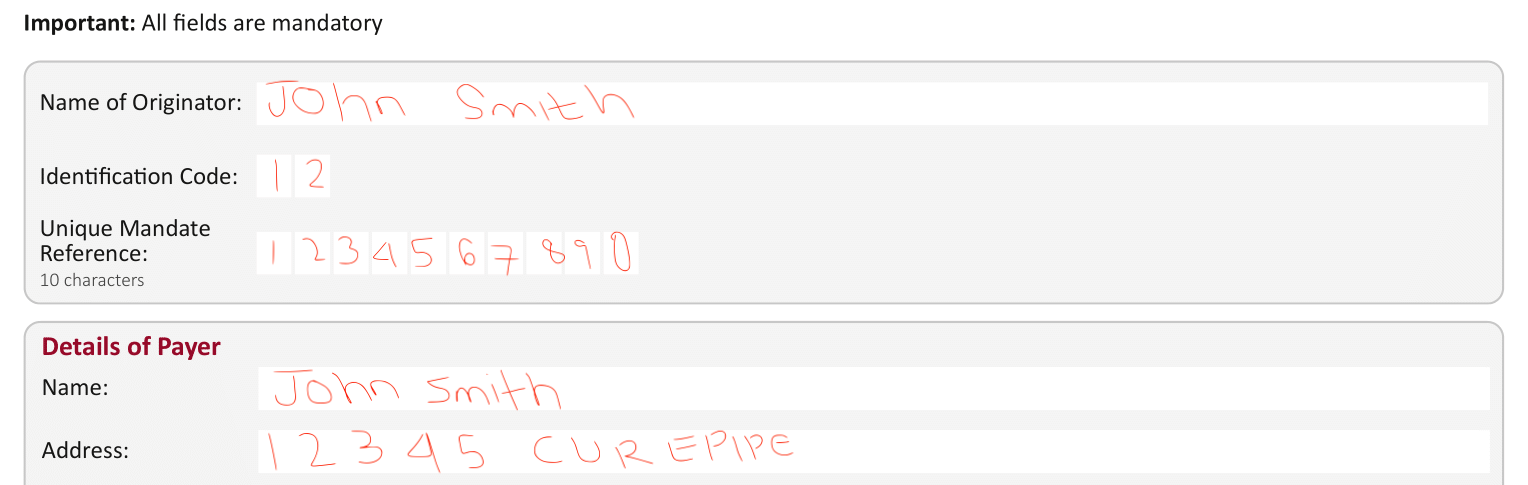 Important: All fields are mandatory
Name of Originator: John Smith
Identification Code: 12
Unique Mandate
Reference: 1234567890
10 characters
Details of Payer
Name: John Smith
Address: 12345 CUREPIPE